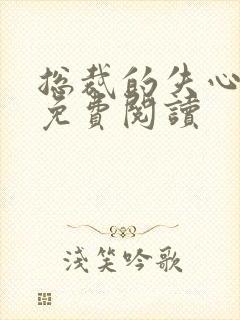 總裁的失心
免費閱讀
淺笑吟歌